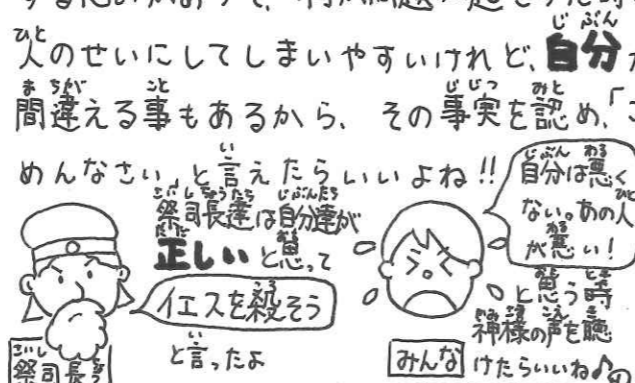 人のせいにしてしまいやすいけれど、自分
間違える事もあるから、その事実を認め、「ご
めんなさい」と言えたらいいよね!!
祭司長達は自分達が
正しいと思って
イエスを殺そう
と言ったよ
祭司長
自分は悪く
ない。あの人
が悪い!
と思う時
神様の声を聴
けたらいいね♪
みんな